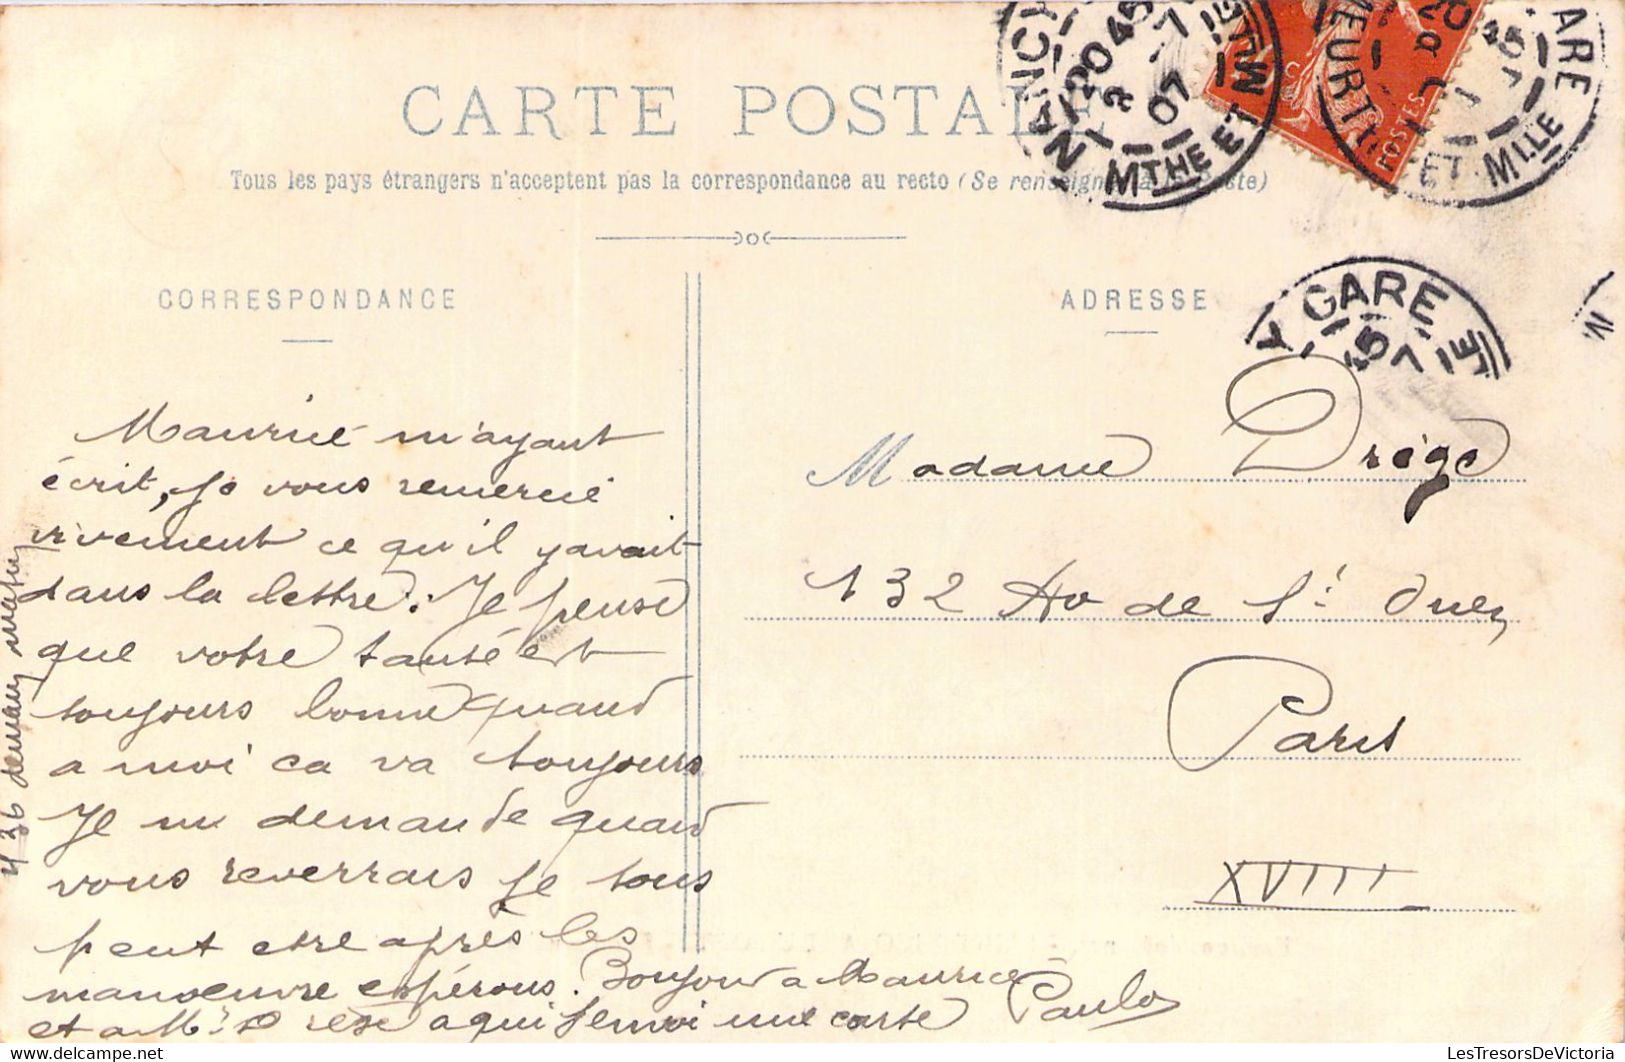 CARTE POSTALE
Tous les pays étrangers n'acceptent pas la correspondance au recto (Se renseigner à la Poste)
NANCY
20 45
2 7
07
MTHE ET MLLE
POSTES
GARE
MEURTHE
ET MLLE
Y GARE
CORRESPONDANCE
ADRESSE
Maurice m'ayant
écrit, je vous remercie
vivement ce qu'il y avait
dans la lettre. Je pense
que votre santé est
toujours bonne quand
a moi ca va toujours
Je me demande quand
vous reverrais je tous
peut etre après les
manoeuvre espérons. Bonjour a Maurice
et a Mr Drege a qui j'envoi une carte Paulo
436 demain matin
Madame Drège
132 Av de St Ouen
Paris
XVIII
LesTresorsDeVictoria